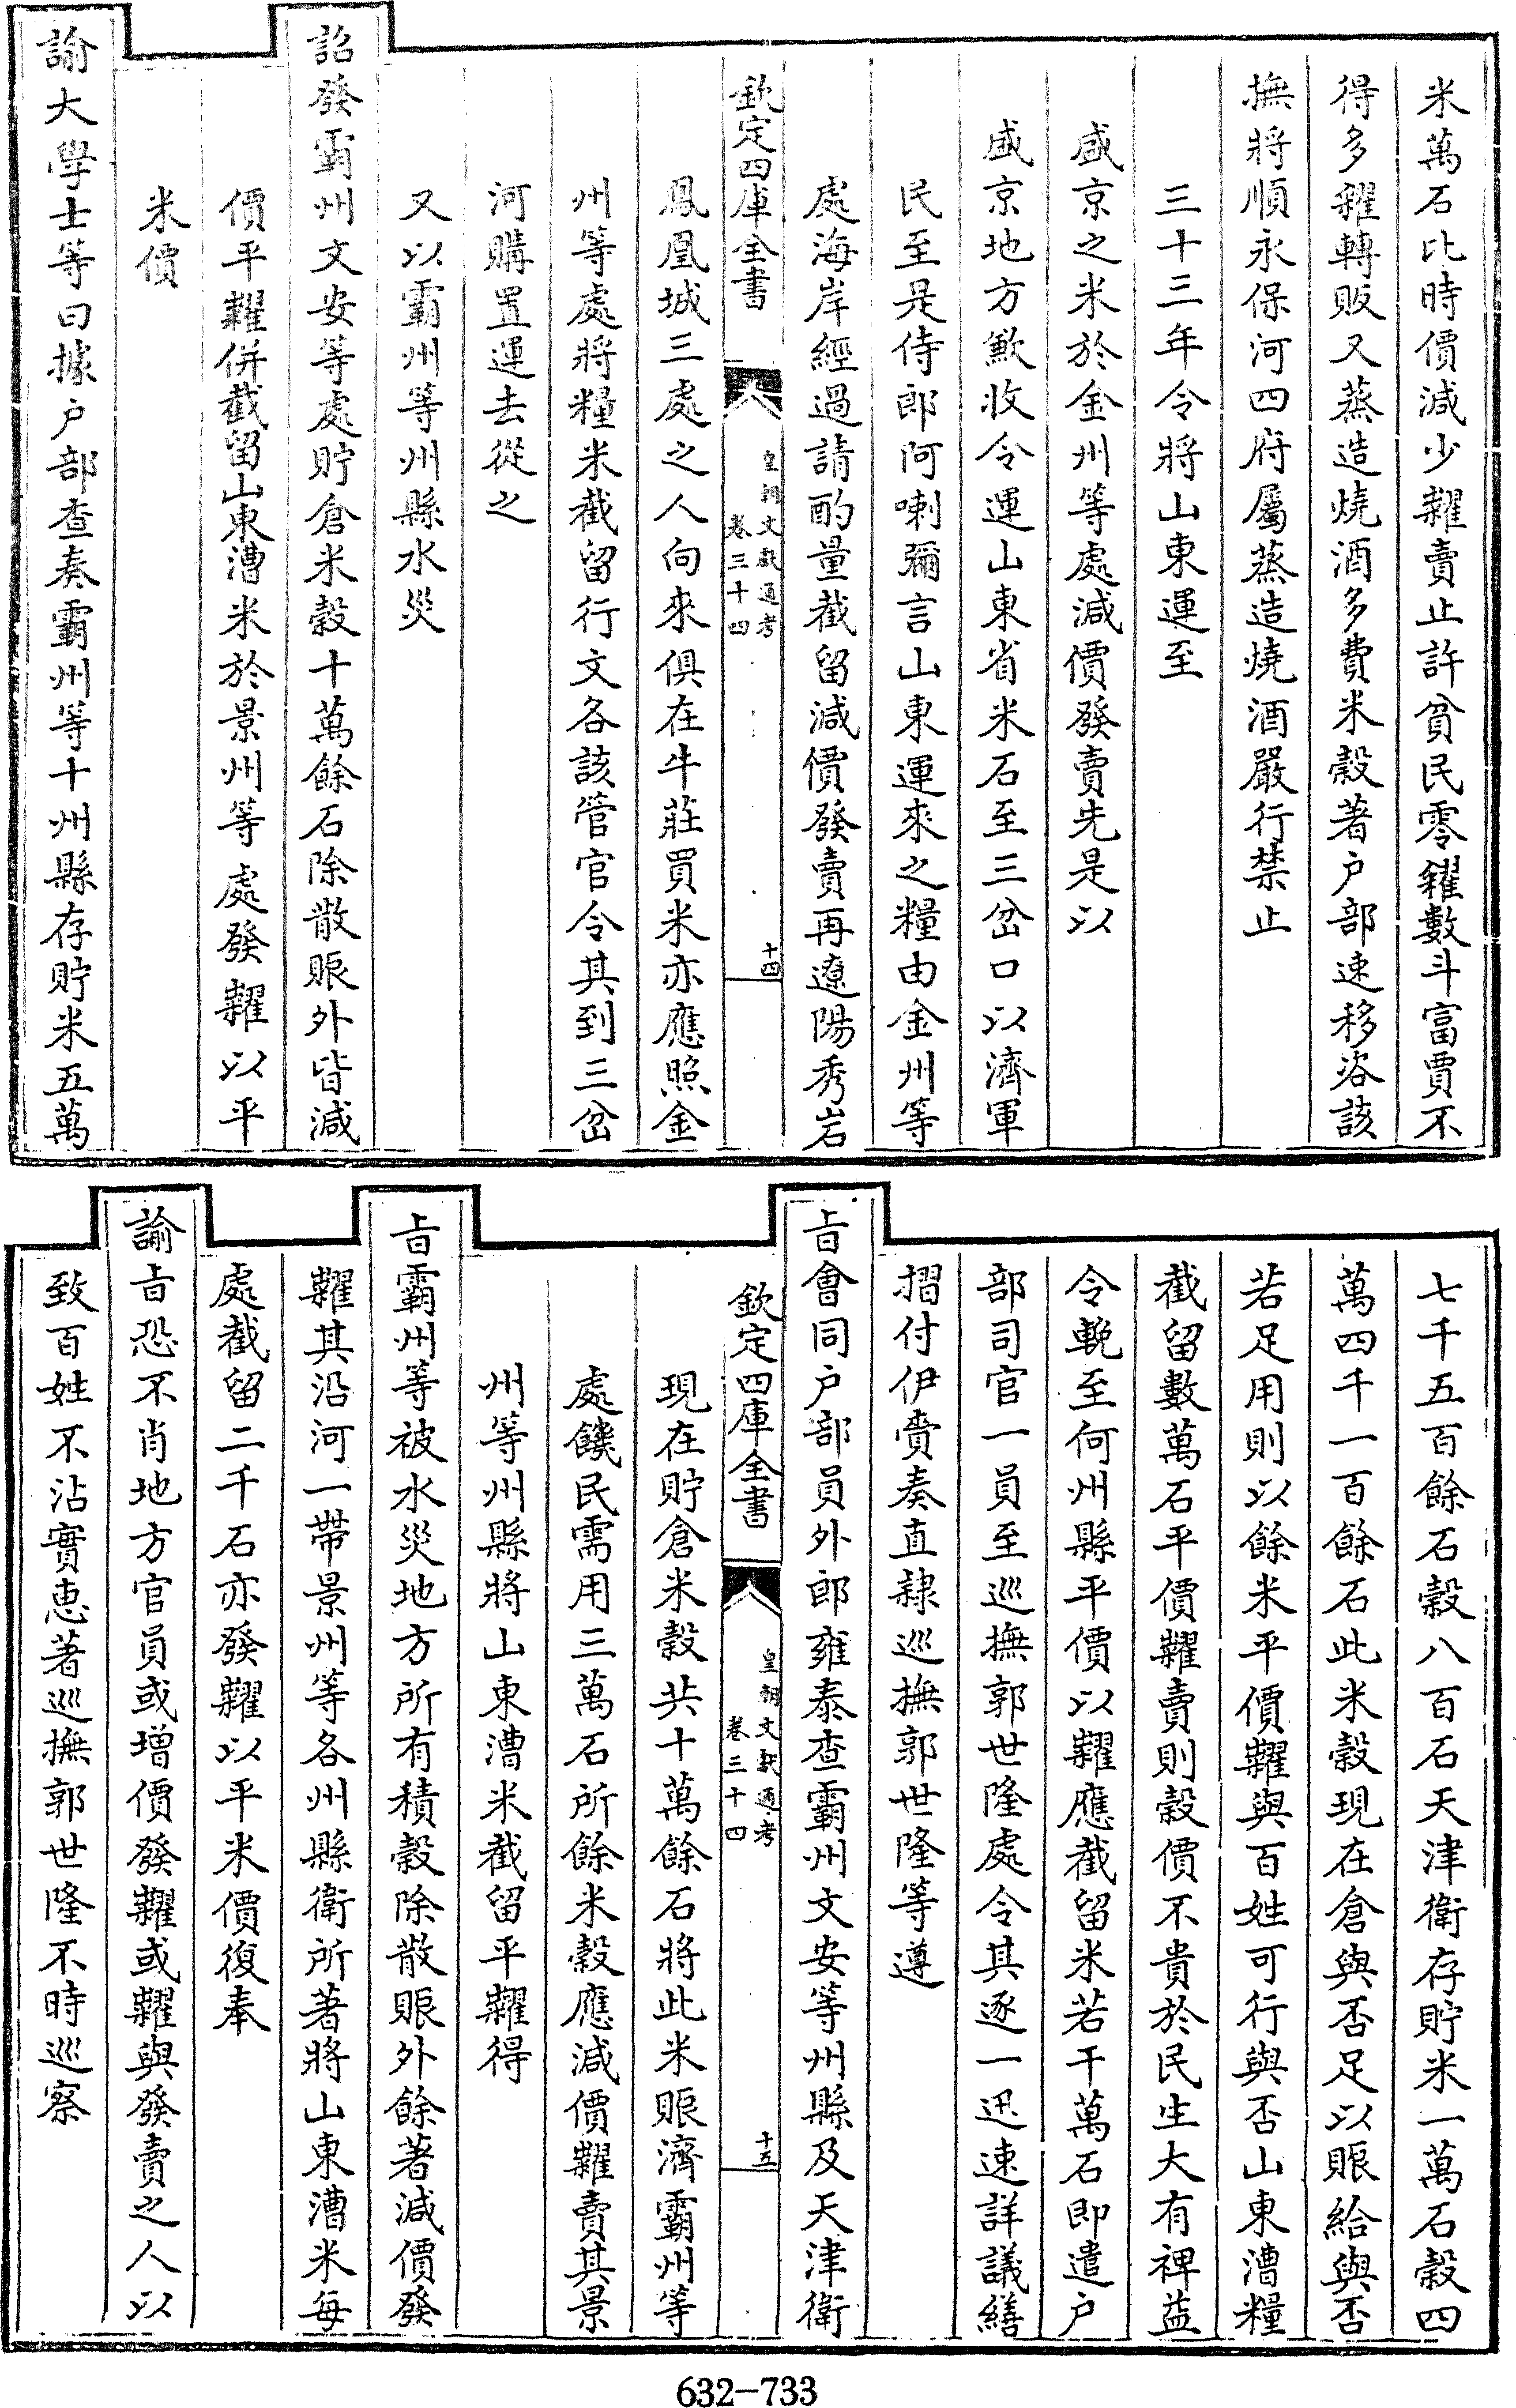 米萬石比時價減少糶賣止許貧民零糴數斗富賈不
得多糴轉販又蒸造燒酒多費米穀著户部速移咨該
撫將順永保河四府屬蒸造燒酒嚴行禁止
三十三年令將山東運至
盛京之米於金州等處減價發賣先是以
盛京地方歉收令運山東省米石至三岔口以濟軍
民至是侍郎阿喇彌言山東運來之糧由金州等
處海岸經過請酌量截留減價發賣再遼陽秀岩
欽定四庫全書
皇朝文獻通考
卷三十四
十四
鳳凰城三處之人向來俱在牛莊買米亦應照金
州等處將糧米截留行文各該管官令其到三岔
河購置運去從之
又以霸州等州縣水災
詔發霸州文安等處貯倉米穀十萬餘石除散賑外皆減
價平糶併截留山東漕米於景州等處發糶以平
米價
諭大學士等曰據户部查奏霸州等十州縣存貯米五萬
七千五百餘石穀八百石天津衛存貯米一萬石穀四
萬四千一百餘石此米穀現在倉與否足以賑給與否
若足用則以餘米平價糶與百姓可行與否山東漕糧
截留數萬石平價糶賣則穀價不貴於民生大有裨益
令輓至何州縣平價以糶應截留米若干萬石即遣户
部司官一員至巡撫郭世隆處令其逐一迅速詳議繕
摺付伊賫奏直隷巡撫郭世隆等遵
㫖會同户部員外郎雍泰查霸州文安等州縣及天津衛
欽定四庫全書
皇朝文獻通考
卷三十四
十五
現在貯倉米穀共十萬餘石將此米賑濟霸州等
處饑民需用三萬石所餘米穀應減價糶賣其景
州等州縣將山東漕米截留平糶得
㫖霸州等被水災地方所有積穀除散賑外餘著減價發
糶其沿河一帶景州等各州縣衛所著將山東漕米每
處截留二千石亦發糶以平米價復奉
諭㫖恐不肖地方官員或增價發糶或糶與發賣之人以
致百姓不沾實惠著巡撫郭世隆不時巡察
632-733